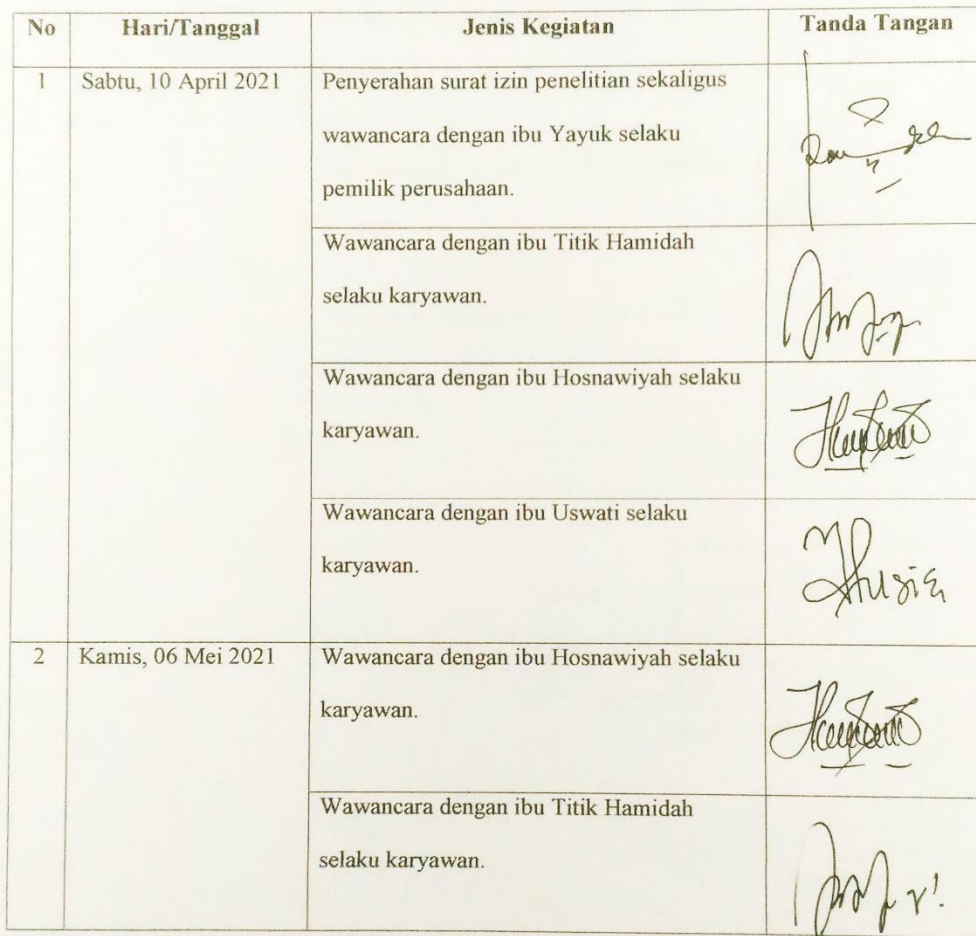 No Hari/Tanggal Jenis Kegiatan Tanda Tangan
1 Sabtu, 10 April 2021 Penyerahan surat izin penelitian sekaligus
wawancara dengan ibu Yayuk selaku
pemilik perusahaan.
Wawancara dengan ibu Titik Hamidah
selaku karyawan.
Wawancara dengan ibu Hosnawiyah selaku
karyawan.
Wawancara dengan ibu Uswati selaku
karyawan.
2 Kamis, 06 Mei 2021 Wawancara dengan ibu Hosnawiyah selaku
karyawan.
Wawancara dengan ibu Titik Hamidah
selaku karyawan.